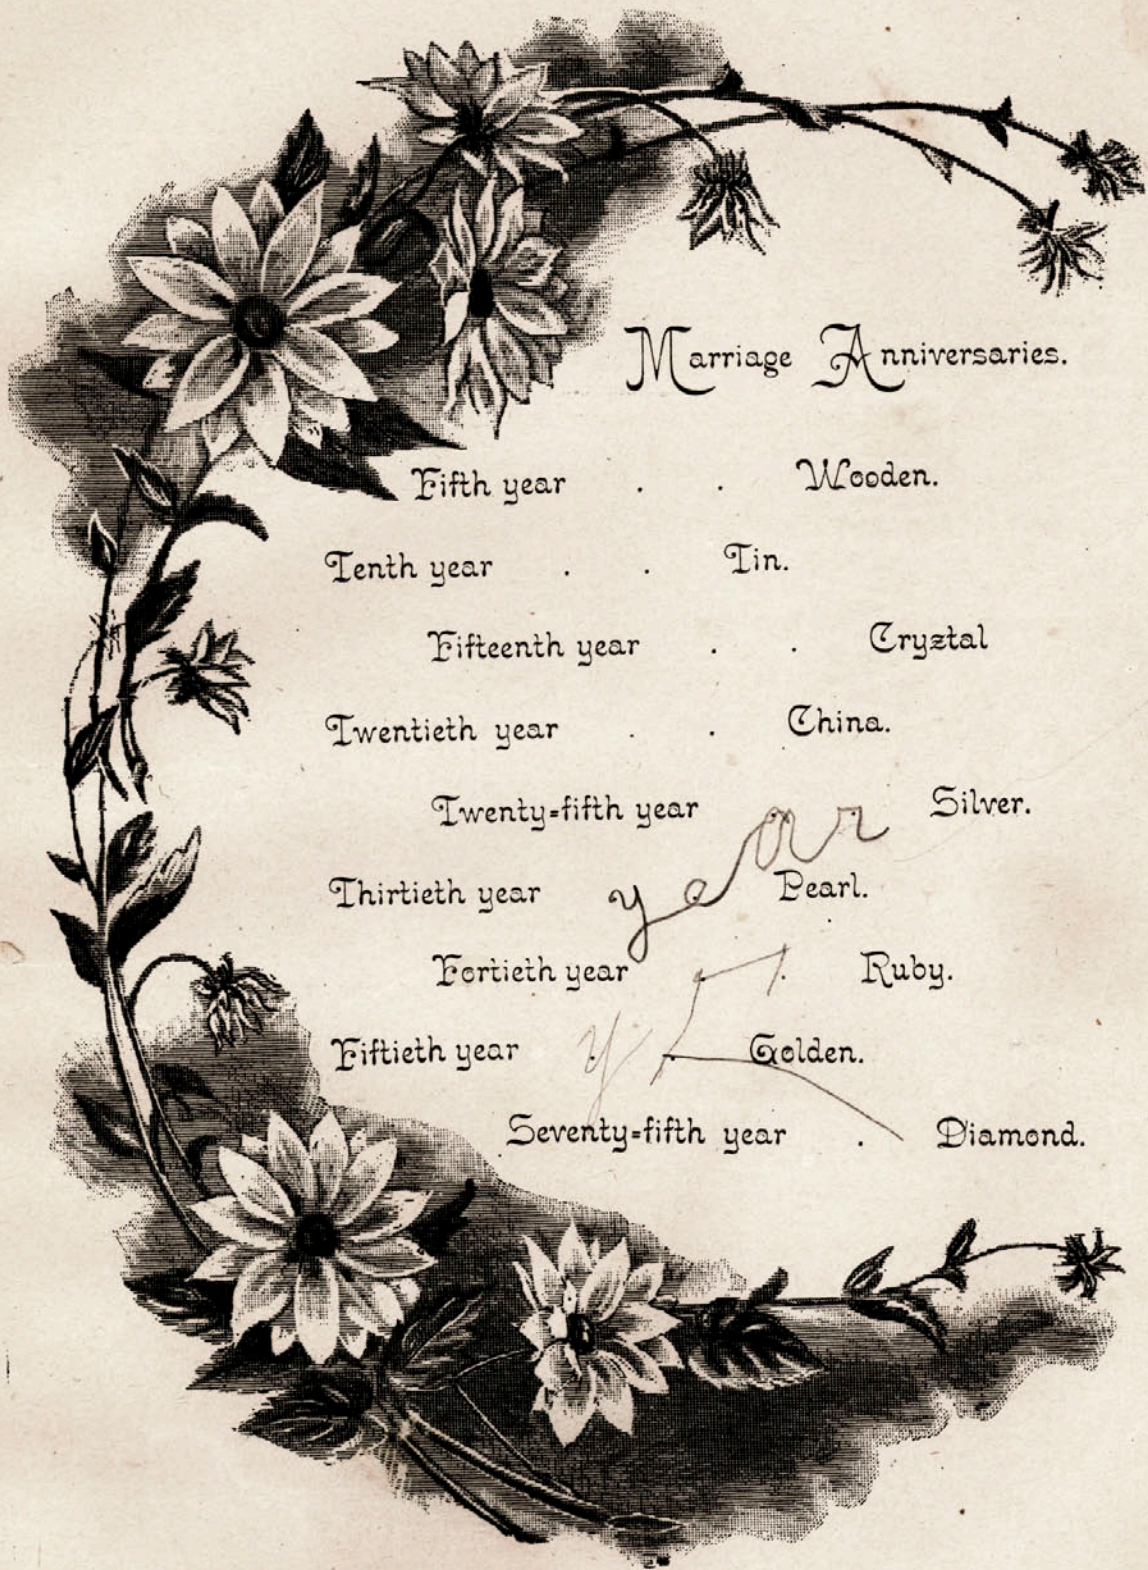 Marriage Anniversaries.
Fifth year . . Wooden.
Tenth year . . Tin.
Fifteenth year . . Cryztal
Twentieth year . . China.
Twenty=fifth year Silver.
year
Thirtieth year Pearl.
Fortieth year . Ruby.
Fiftieth year Golden.
y
Seventy=fifth year . Diamond.